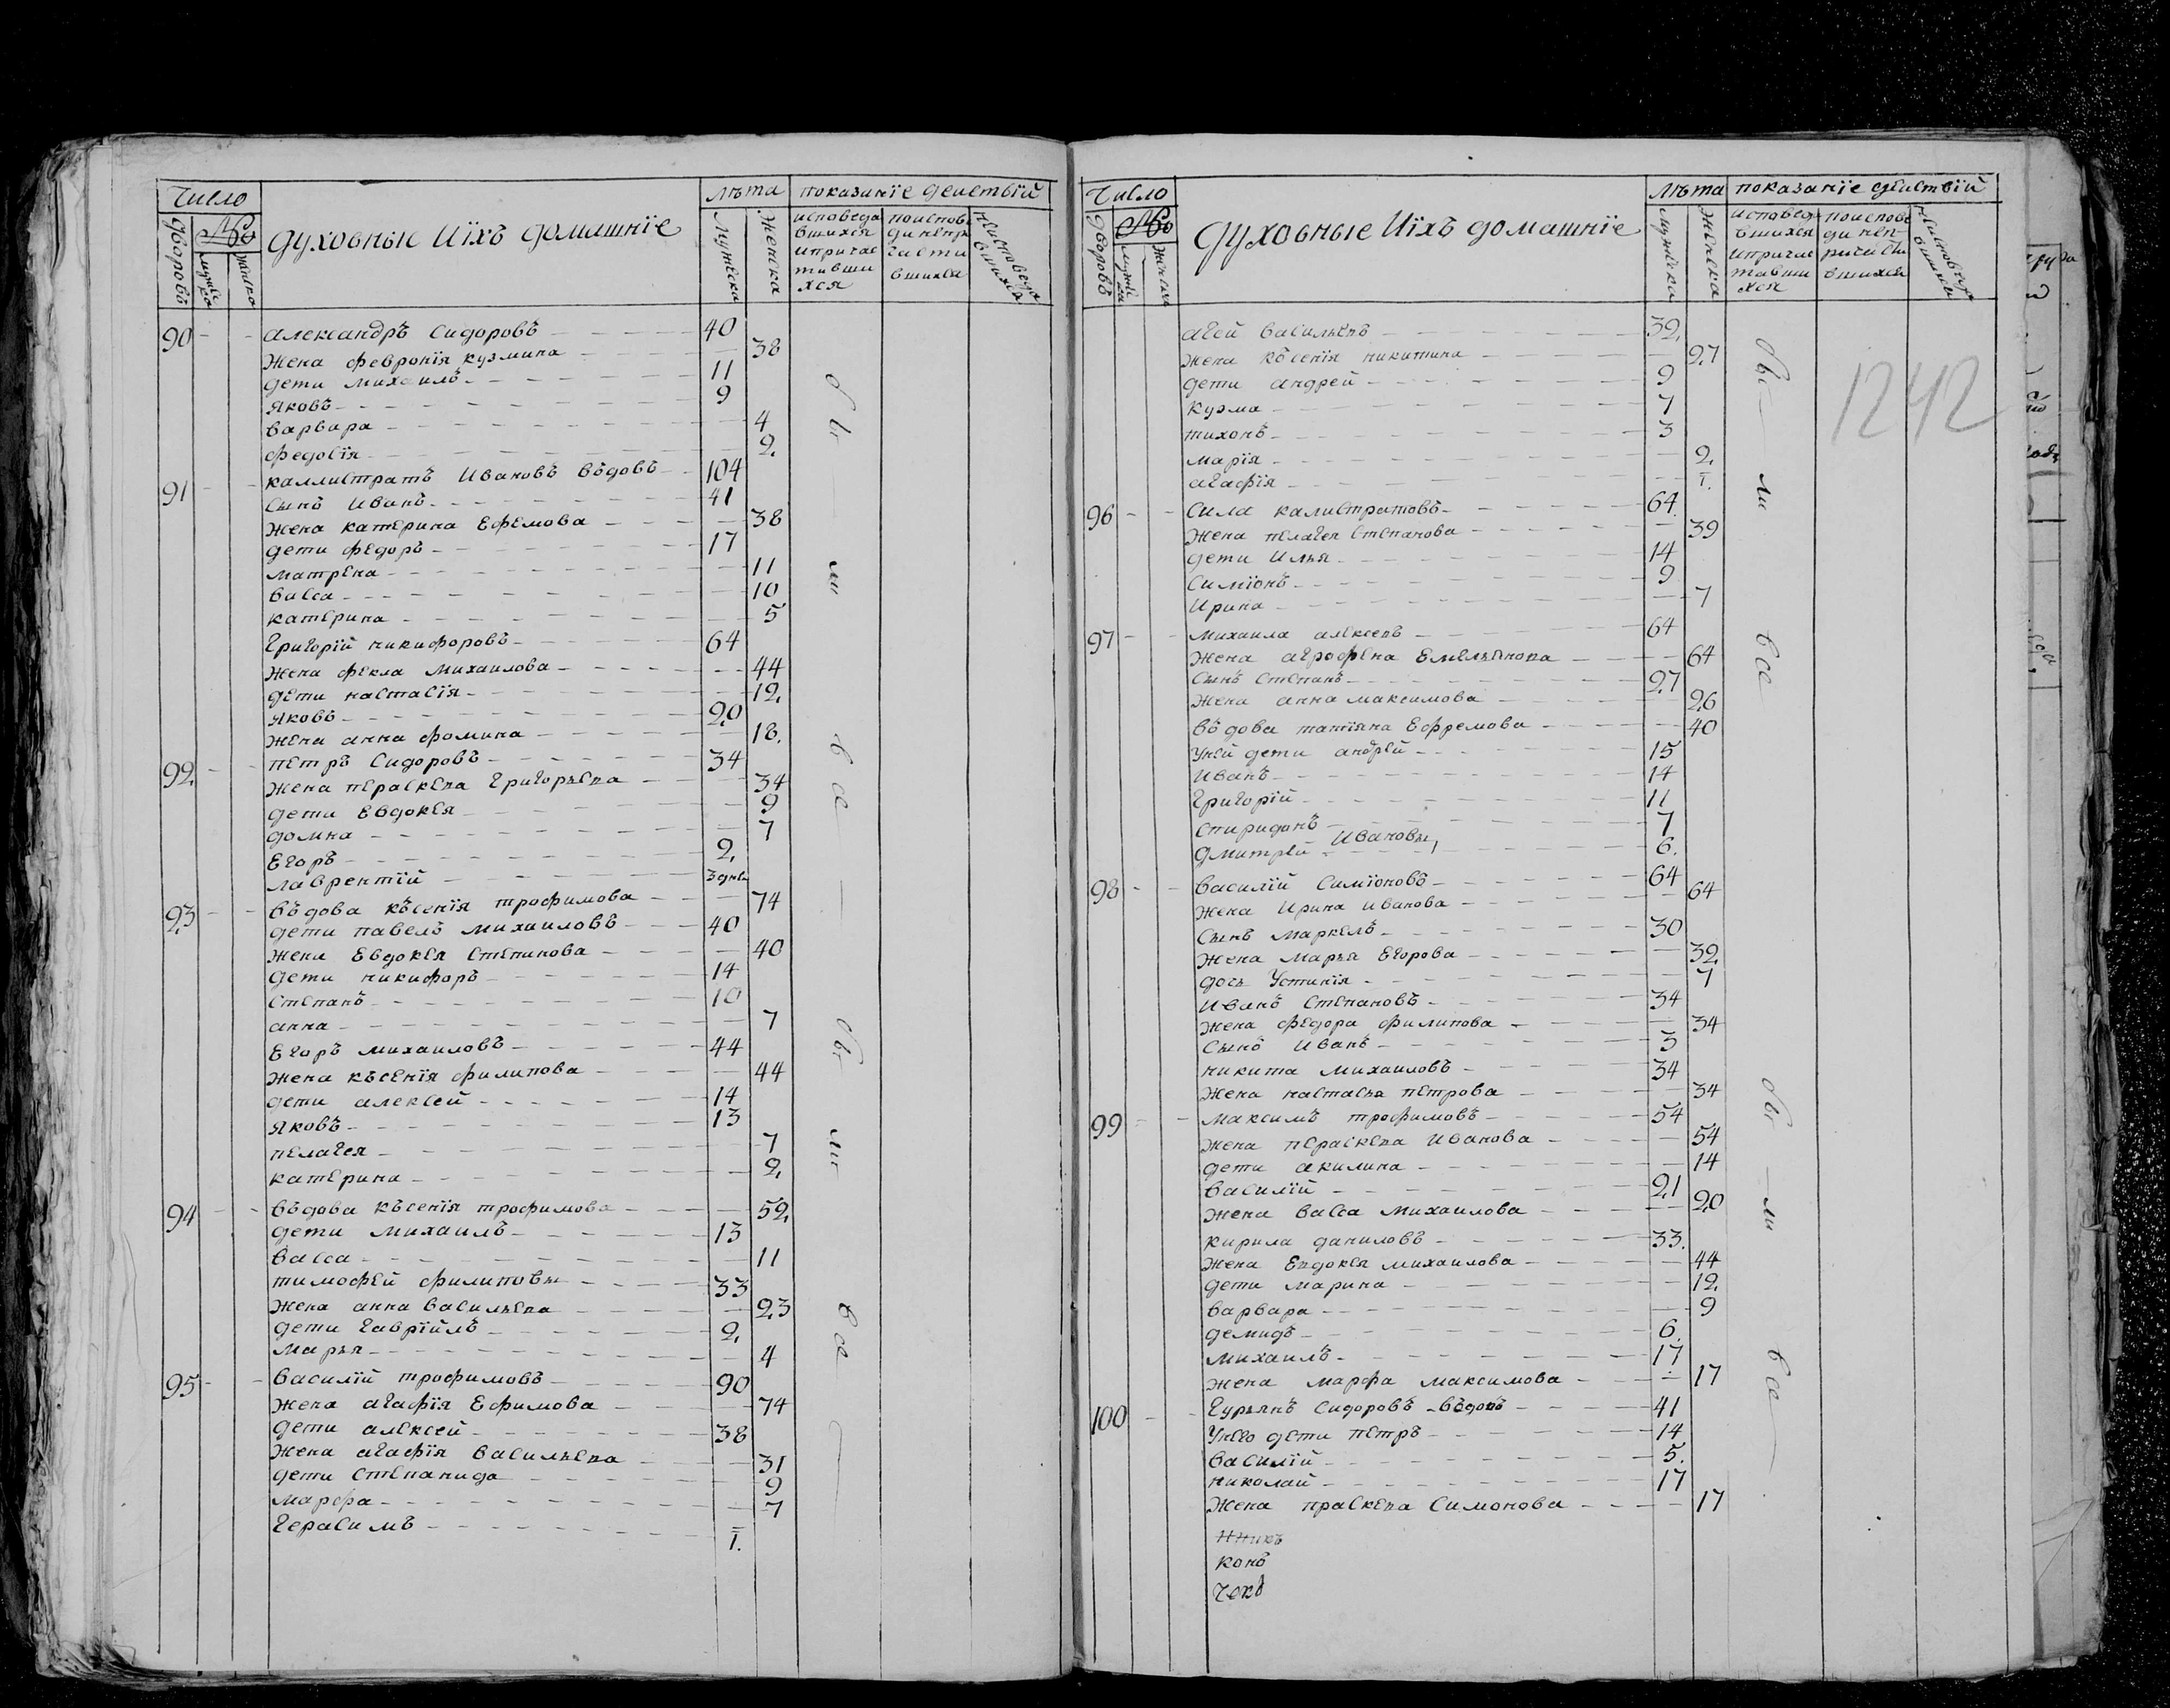 Число
лѣта показанїе деиствїй
№
духовные Иїхъ домашнїе
дворовъ
мужеска
женска
исповеда
вшихся
ипричас
тивши
хся
90 александръ Сидоровъ 40
жена февронїя кузмина 38
дети михаилъ 11
яковъ 9
варвара 4
федосїя 2
91 каллистратъ Ивановъ въдовъ 104
Сынъ Иванъ 41
жена катерина Ефемова 38
дети федоръ 17
матрена 11
васса 10
катерина 5
григорїй никифоровъ 64
жена фекла михаилова 44
дети настасїя 12
яковъ 20
жена анна фомина 18
92 петръ Сидоровъ 34
жена пераскева григорьева 34
дети Евдокея 9
домна 7
Егоръ 2
лаврентїй 3 дне
93 въдова късенїя трофимова 74
дети павелъ михаиловъ 40
жена Евдокея Степанова 40
дети никифоръ 14
Степанъ 10
анна 7
Егоръ михаиловъ 44
жена късенїя филипова 44
дети алексей 14
яковъ 13
пелагея 7
катерина 2
94 въдова късенїя трофимова 52
дети михаилъ 13
васса 11
тимофей филиповъ 33
жена анна васильева 23
дети гаврїилъ 2
марья 4
95 василїй трофимовъ 90
жена агафїя Ефимова 74
дети алексей 38
жена агафїя васильева 31
дети степанида 9
марфа 7
герасимъ 1
Число
лѣта показанїе деиствїй
№
духовные Иїхъ домашнїе
дворовъ
мужеска
женска
исповед
вшихся
ипричас
тавши
хся
1242
агей васильевъ 32
жена късенїя никитина 27
дети андрей 9
кузма 7
тихонъ 3
марїя 2
агафїя 1
96 Сила калистратовъ 64
жена пелагея степанова 39
дети Илья 14
Симїонъ 9
Ирина 7
97 михаила алексеевъ 64
жена агрофена Емельянова 64
Сынъ Степанъ 27
жена анна максимова 26
въдова татїяна Ефремова 40
Уней дети андрей 15
Иванъ 14
григорїй 11
спиридонъ 7
дмитрей Ивановы 6
98 василїй Симїоновъ 64
жена Ирина Иванова 64
Сынъ маркелъ 30
жена марья Егорова 32
дочь Устинїя 7
Иванъ Степановъ 34
жена федора филипова 34
Сынъ Иванъ 3
никита михаиловъ 34
жена настасья петрова 34
99 максимъ трофимовъ 54
жена пераскева Иванова 54
дети акилина 14
василїй 21
жена васса михаилова 20
кирила даниловъ 33
жена Евдокея михаилова 44
дети марина 12
варвара 9
демидъ 6
михаилъ 17
жена марфа максимова 17
100 гурьянъ Сидоровъ въдовъ 41
Унего дети петръ 14
василїй 5
николай 17
жена праскева Симонова 17